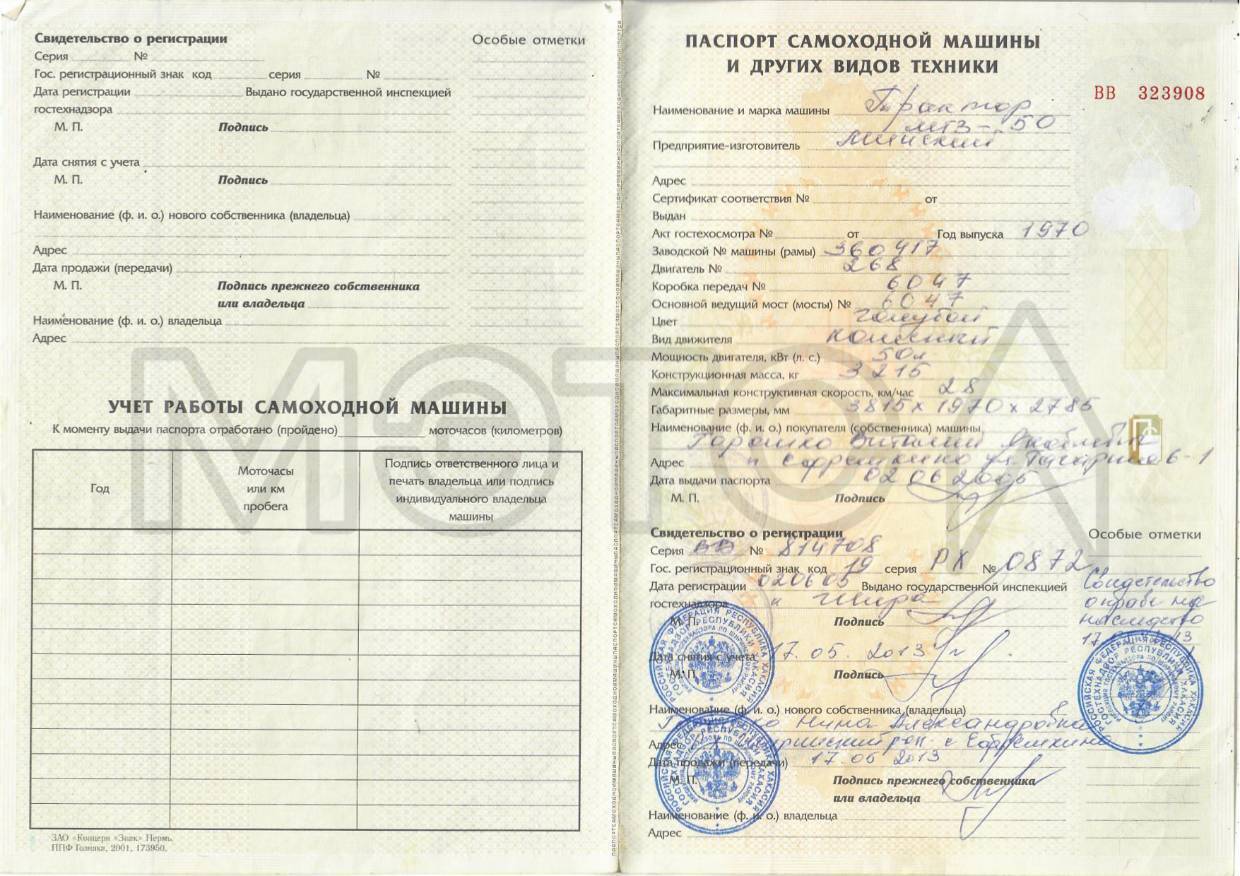 Свидетельство о регистрации
Особые отметки
Серия № 
Гос. регистрационный знак код серия №
Дата регистрации Выдано государственной инспекцией
гостехнадзора
М. П. Подпись
Дата снятия с учета
М. П. Подпись
Наименование (ф. и. о.) нового собственника (владельца)
Адрес
Дата продажи (передачи)
М. П. Подпись прежнего собственника
или владельца
Наименование (ф. и. о.) владельца
Адрес
УЧЕТ РАБОТЫ САМОХОДНОЙ МАШИНЫ
К моменту выдачи паспорта отработано (пройдено) моточасов (километров)
Год
Моточасы
или км
пробега
Подпись ответственного лица и
печать владельца или подпись
индивидуального владельца
машины
ЗАО «Концерн «Знак» Пермь.
ППФ Гознака, 2001, 173950.
ПАСПОРТ САМОХОДНОЙ МАШИНЫ
И ДРУГИХ ВИДОВ ТЕХНИКИ
ВВ 323908
Наименование и марка машины Трактор
МТЗ-50
Предприятие-изготовитель Минский
Адрес
Сертификат соответствия № от
Выдан
Акт гостехосмотра № от Год выпуска 1970
Заводской № машины (рамы) 360417
Двигатель № 268
Коробка передач № 6047
Основной ведущий мост (мосты) № 6047
Цвет голубой
Вид движителя колесный
Мощность двигателя, кВт (л. с.) 50л
Конструкционная масса, кг 3215
Максимальная конструктивная скорость, км/час 28
Габаритные размеры, мм 3815х1970х2785
Наименование (ф. и. о.) покупателя (собственника) машины
Горошко Виталий Яковлевич
Адрес с Ефремкино ул. Гагарина 6-1
Дата выдачи паспорта 02 06 2005
М. П. Подпись
Свидетельство о регистрации
Особые отметки
Серия ВВ № 814708
Гос. регистрационный знак код 19 серия РХ № 0872
Дата регистрации 020605 Выдано государственной инспекцией
гостехнадзора п Шира
М. П. Подпись
Свидетельство
о праве на
наследство
Дата снятия с учета 17.05.2013
М. П. Подпись
Наименование (ф. и. о.) нового собственника (владельца)
Горошко Нина Александровна
Адрес Ширинский рон с Ефремкино
Дата продажи (передачи) 17 05 2013
М. П. Подпись прежнего собственника
или владельца
Наименование (ф. и. о.) владельца
Адрес
МОТОЛ